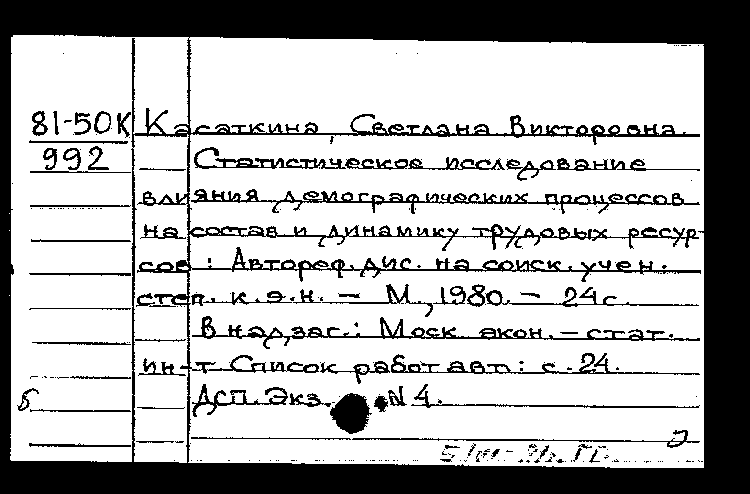 81-50К Касаткина, Светлана Викторовна.
992 Статистическое исследование
влияния демографических процессов
на состав и динамику трудовых ресур-
сов : Автореф. дис. на соиск. учен.
степ. к.э.н. — М., 1980. — 24 с.
В надзаг.: Моск. экон.-стат.
ин-т. Список работ авт.: с. 24.
ДСП. Экз. N 4.
Б